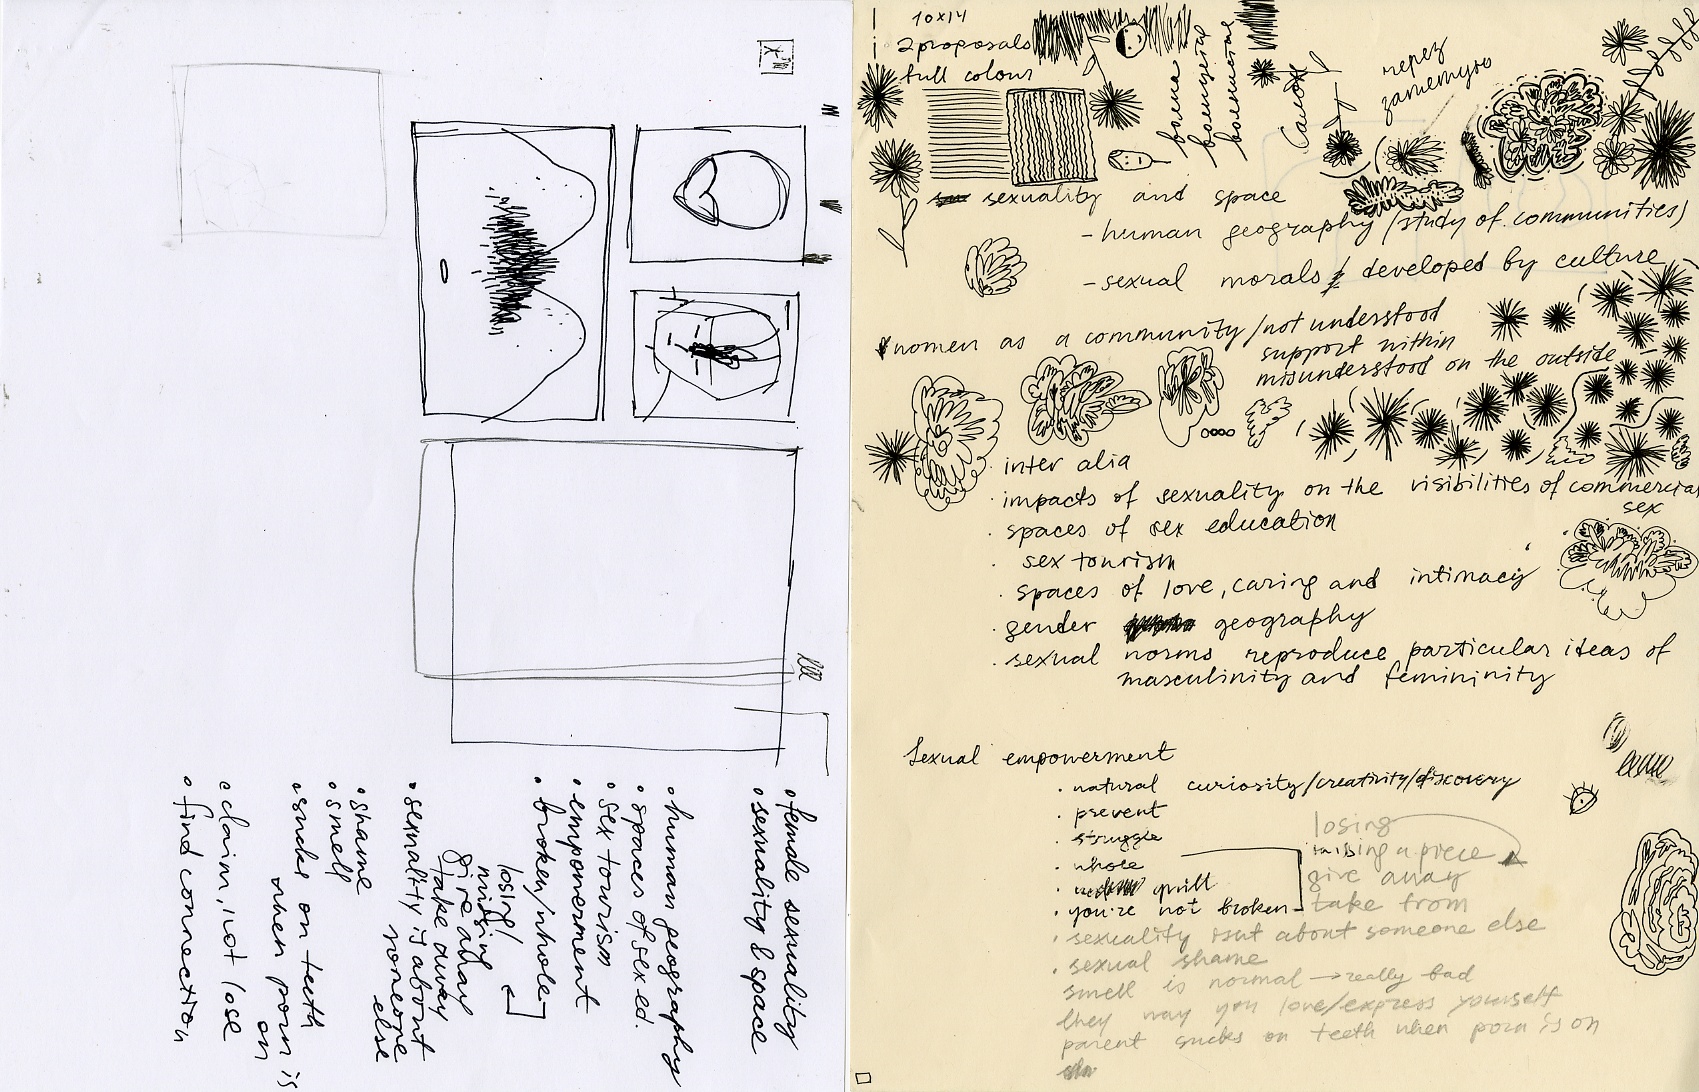 female sexuality
sexuality & space
human geography
spaces of sex ed.
sex tourism
empowerment
broken/whole
losing/
missing
give away
take away
sexuality is about
someone
else
shame
smell
sucks on teeth
when porn is
on
claim, not lose
find connection
10x14
2 proposals
full colour
волна
волнистые
через
запятую
sexuality and space
- human geography / study of communities)
- sexual morals developed by culture
women as a community / not understood
support within
misunderstood on the outside
· inter alia
· impacts of sexuality on the visibilities of commercial
sex
· spaces of sex education
· sex tourism
· spaces of love, caring and intimacy
· gender geography
· sexual norms reproduce particular ideas of
masculinity and femininity
Sexual empowerment
· natural curiosity/creativity/discovery
· prevent
· struggle
· whole
· quill
· you're not broken
losing
missing a piece
give away
take from
· sexuality isnt about someone else
· sexual shame
smell is normal → really bad
they way you love/express yourself
parent sucks on teeth when porn is on